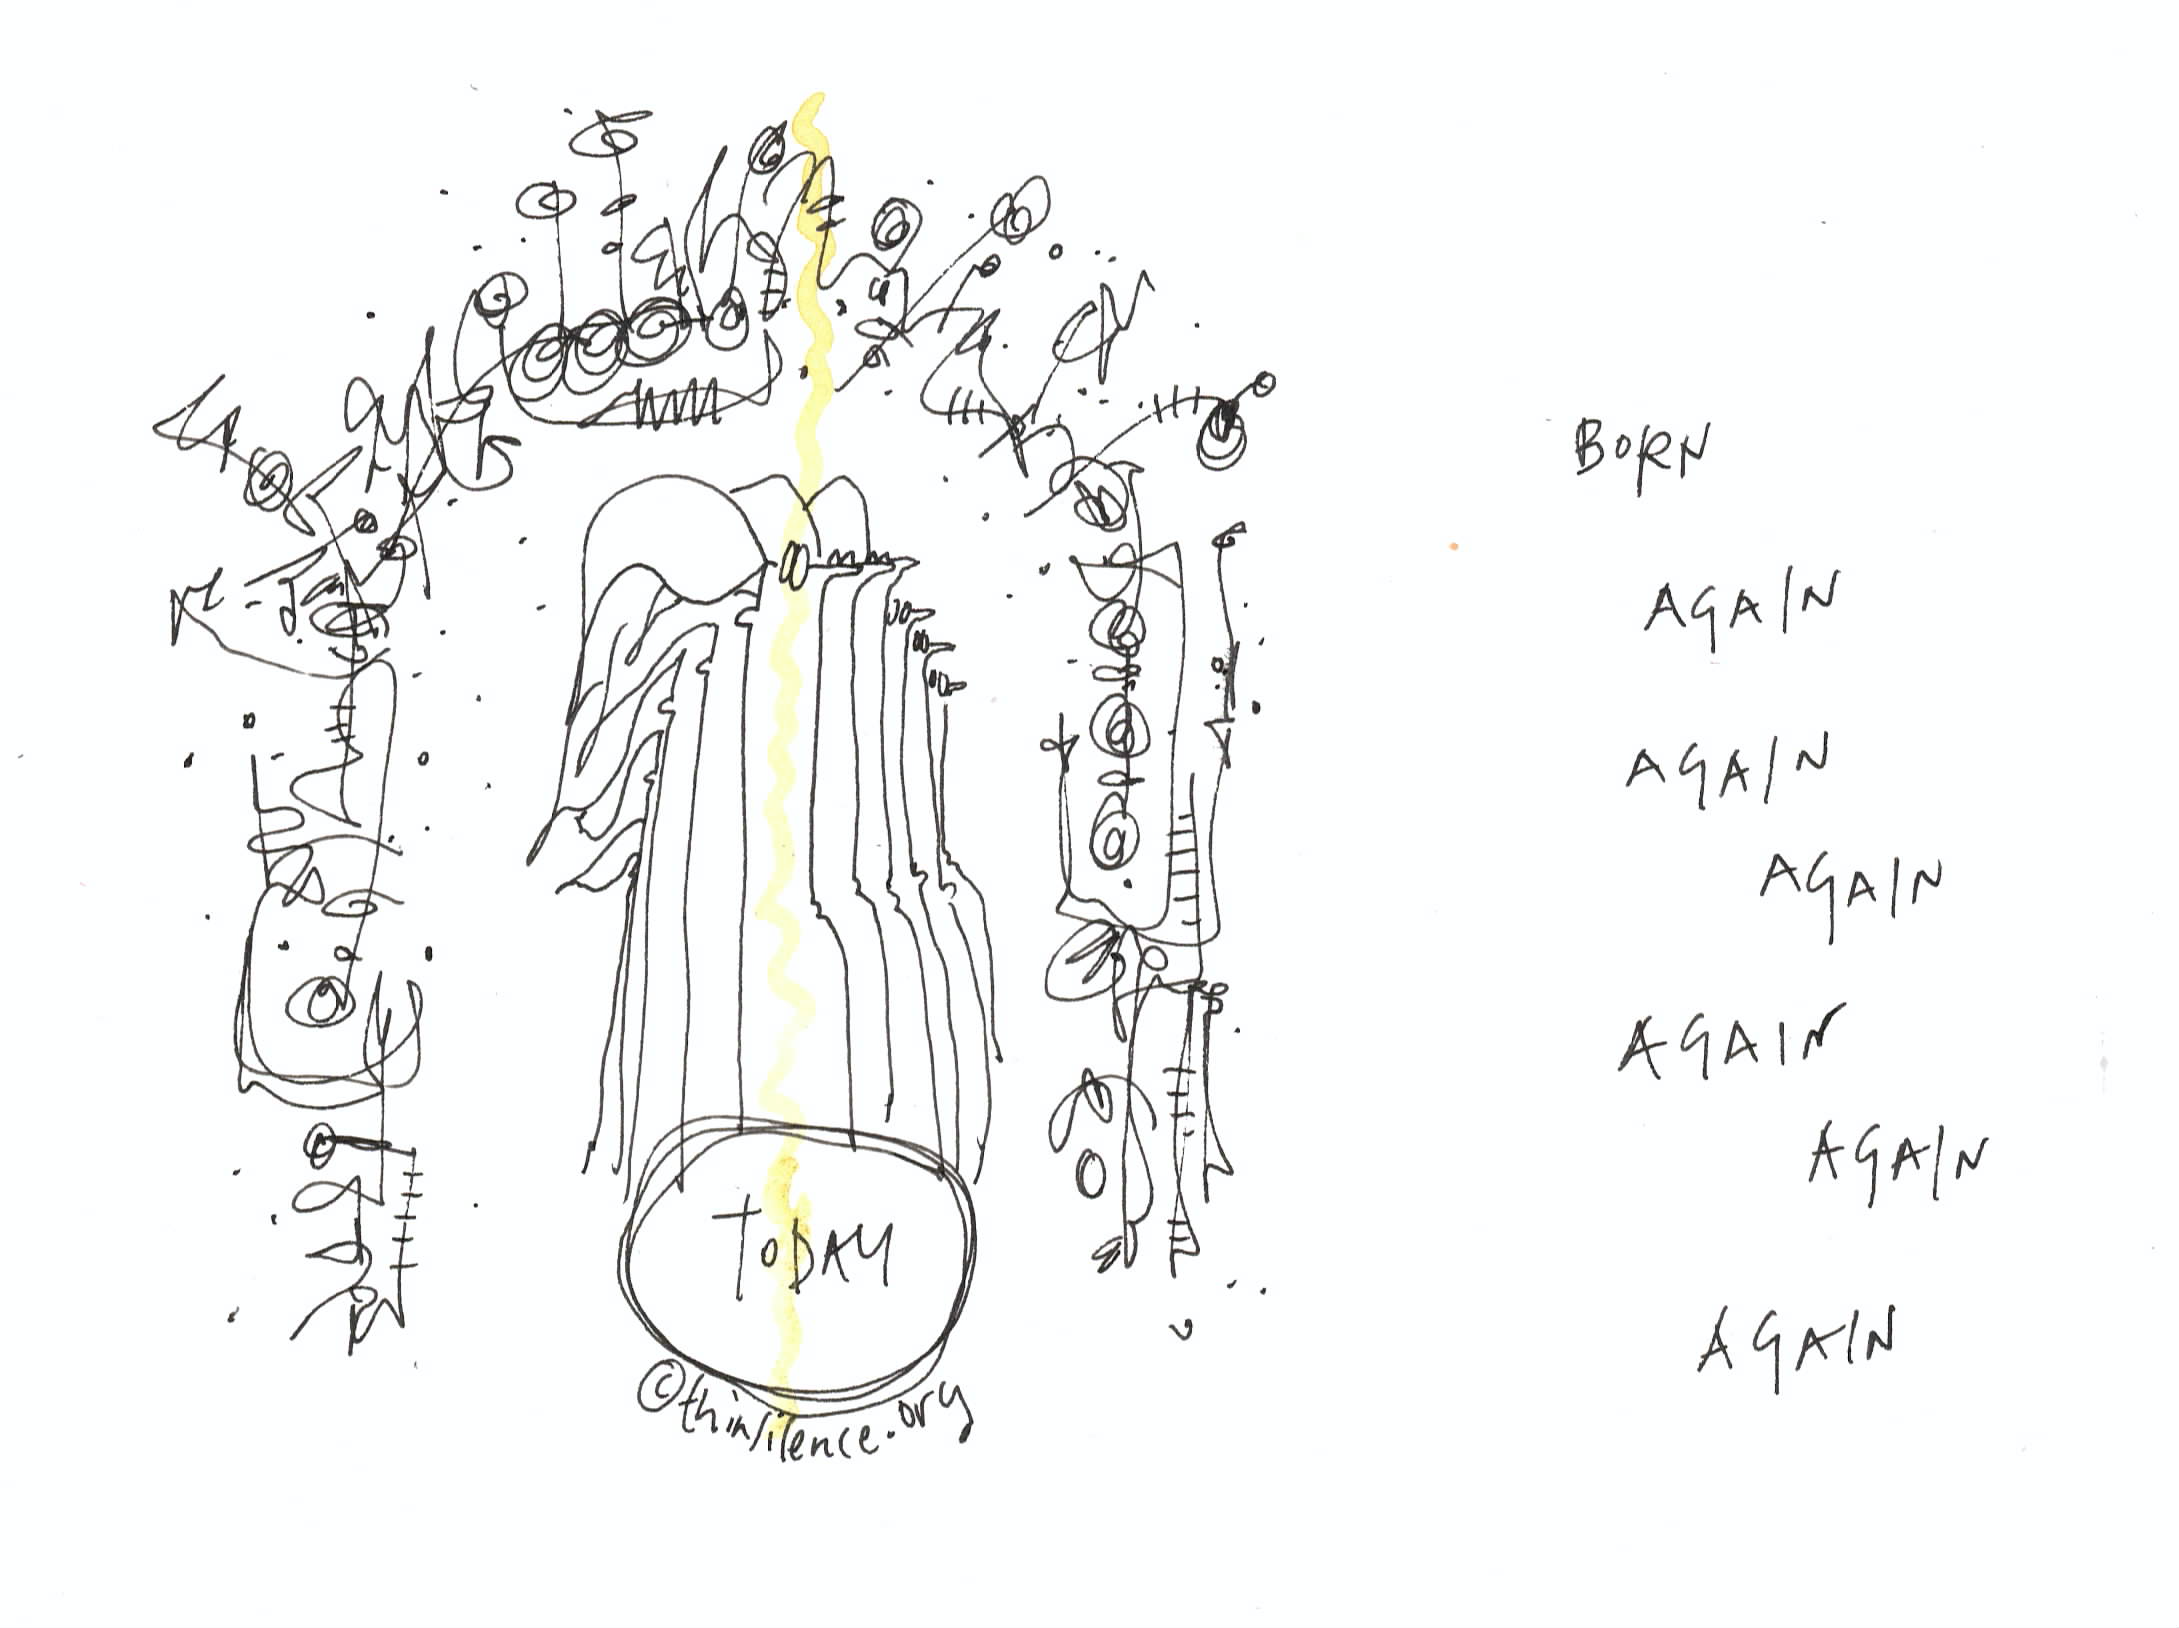 BORN
AGAIN
AGAIN
AGAIN
AGAIN
AGAIN
AGAIN
TODAY
©thinsilence.org